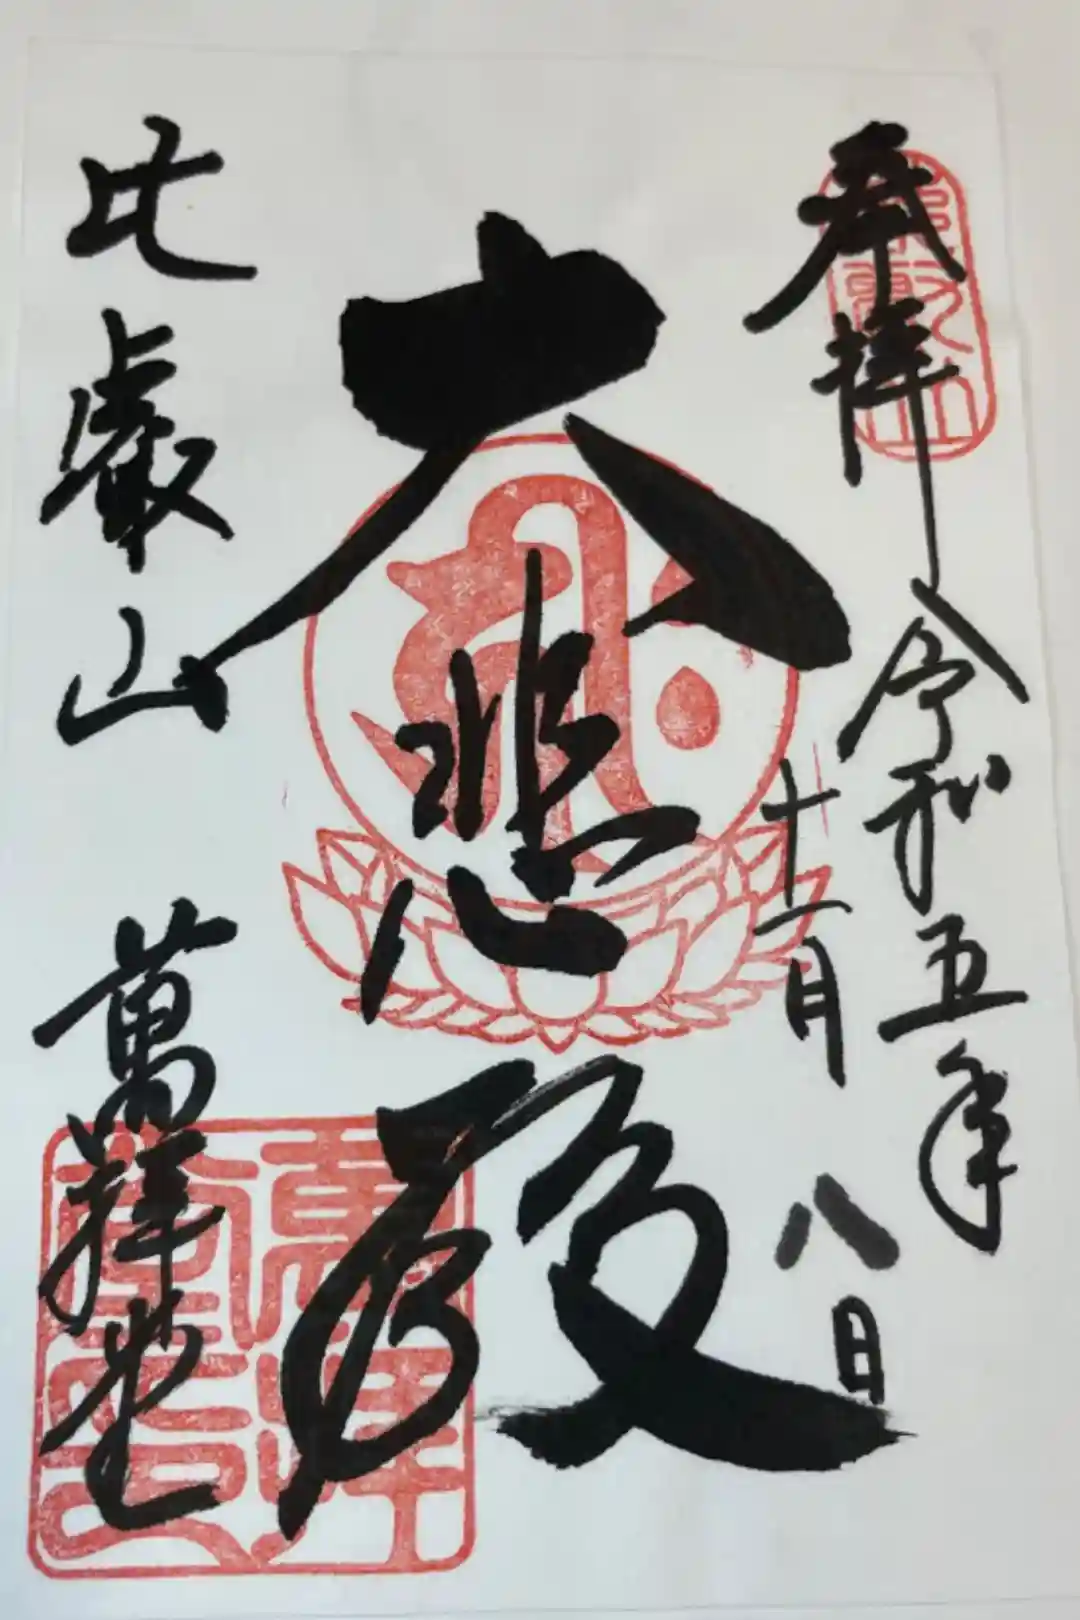 奉拝 令和五年
十一月八日
大悲殿
比叡山 萬拝堂